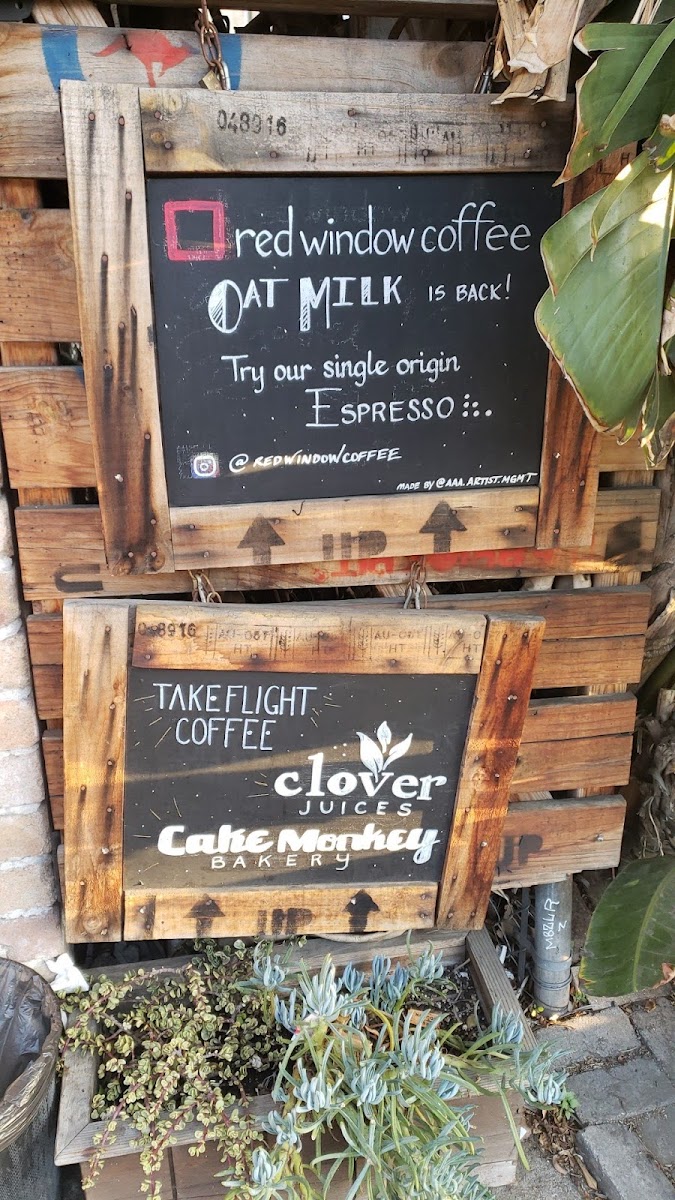 048916
red window coffee
OAT MILK IS BACK!
Try our single origin
ESPRESSO
@REDWINDOWCOFFEE
MADE BY @AAA.ARTIST.MGMT
UP
048916
HT HT AU-061 HT
TAKE FLIGHT
COFFEE
clover
JUICES
Cake Monkey
BAKERY
UP
UP